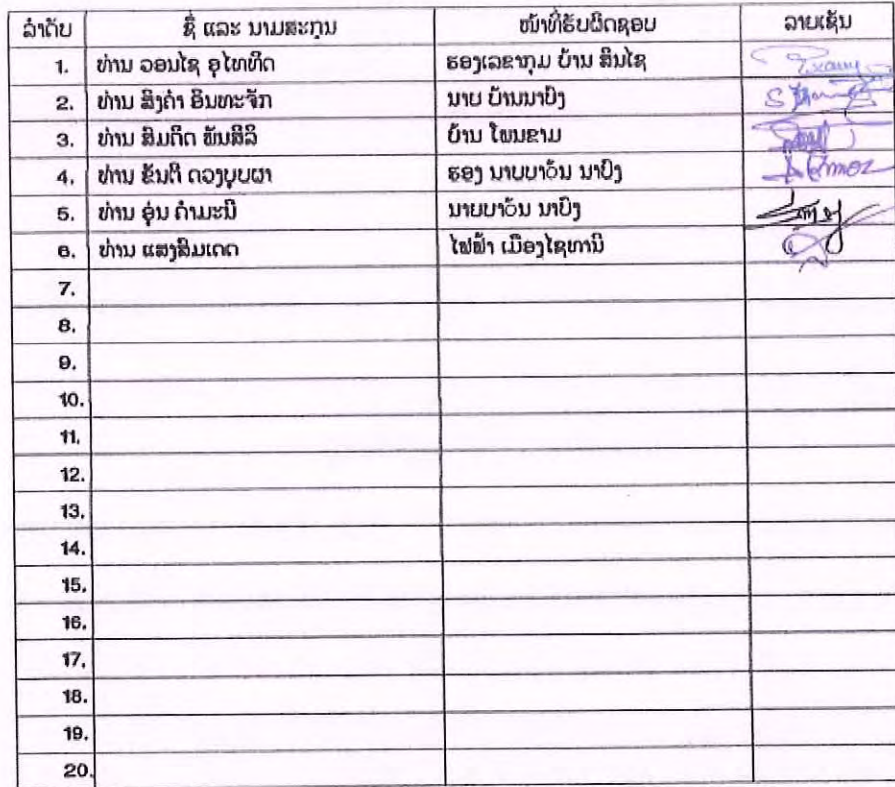 ລຳດັບ ຊື່ ແລະ ນາມສະກຸນ ໜ້າທີ່ຮັບຜິດຊອບ ລາຍເຊັນ
1. ທ່ານ ວອນໄຊ ອຸໄທທິດ ຮອງເລຂາກຸມ ບ້ານ ສິນໄຊ
2. ທ່ານ ສິງຄຳ ອິນທະຈັກ ນາຍ ບ້ານນາບົງ
3. ທ່ານ ສົມຄິດ ພັນສິລິ ບ້ານ ໂພນຂາມ
4. ທ່ານ ຂັນຕີ ດວງບຸບຜາ ຮອງ ນາຍບາ້ນ ນາບົງ
5. ທ່ານ ອຸ່ນ ຄຳມະນີ ນາຍບາ້ນ ນາບົງ
6. ທ່ານ ແສງສົມເດດ ໄຟຟ້າ ເມືອງໄຊທານີ
7.
8.
9.
10.
11.
12.
13.
14.
15.
16.
17.
18.
19.
20.